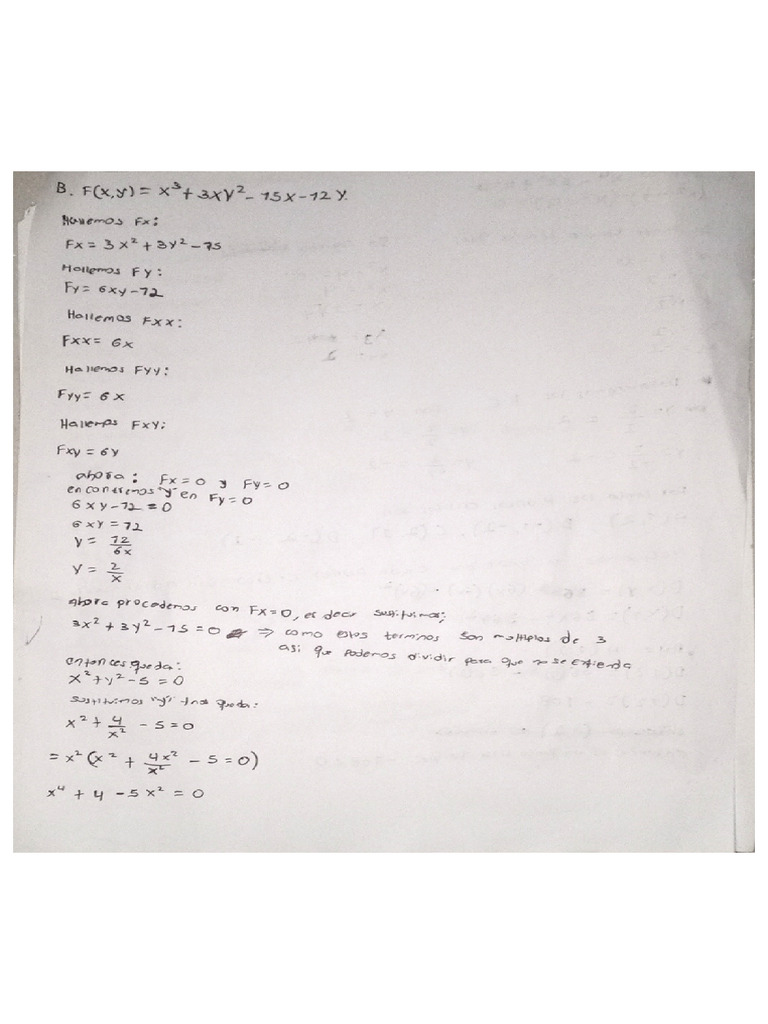 B. F(x,y) = x³ + 3xy² - 15x - 12y.
Hallemos Fx:
Fx = 3x² + 3y² - 15
Hallemos Fy:
Fy = 6xy - 12
Hallemos Fxx:
Fxx = 6x
Hallemos Fyy:
Fyy = 6x
Hallemos Fxy:
Fxy = 6y
ahora: Fx = 0 y Fy = 0
encontremos "y" en Fy = 0
6xy - 12 = 0
6xy = 12
y = 12/6x
y = 2/x
ahora procedemos con Fx = 0, es decir sustituimos;
3x² + 3y² - 15 = 0 ⇒ como estos terminos son multiplos de 3
asi que podemos dividir para que no se extienda
entonces queda:
x² + y² - 5 = 0
sustituimos "y" nos queda:
x² + 4/x² - 5 = 0
= x² (x² + 4x²/x² - 5 = 0)
x⁴ + 4 - 5x² = 0